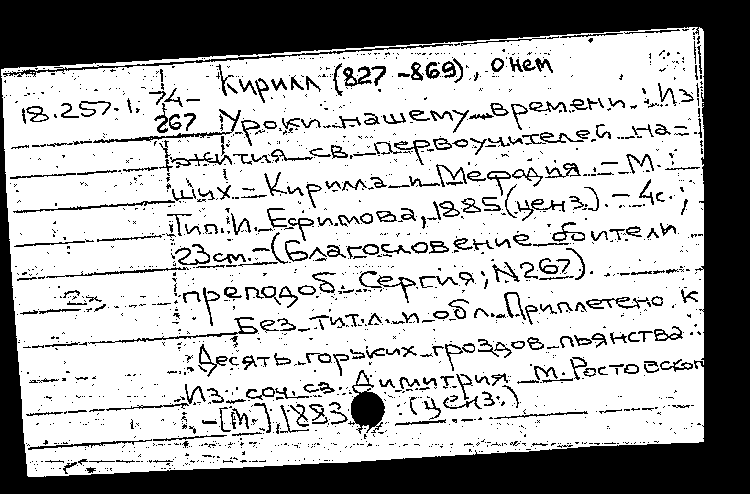 Кирилл (827 –869), о нем
18.257.1. 74–
267 Уроки нашему времени: Из
жития св. первоучителей на-
ших – Кирилла и Мефодия. – М.:
Тип. И. Ефимова, 1885 (ценз.). – 4с.;
23см. – (Благословение обители
преподоб. Сергия; N267).
Без тит.л. и обл. Приплетено к
Десять горьких гроздов пьянства:
Из соч. св. Димитрия м. Ростовског
. –[М.], 1883 . (ценз.)